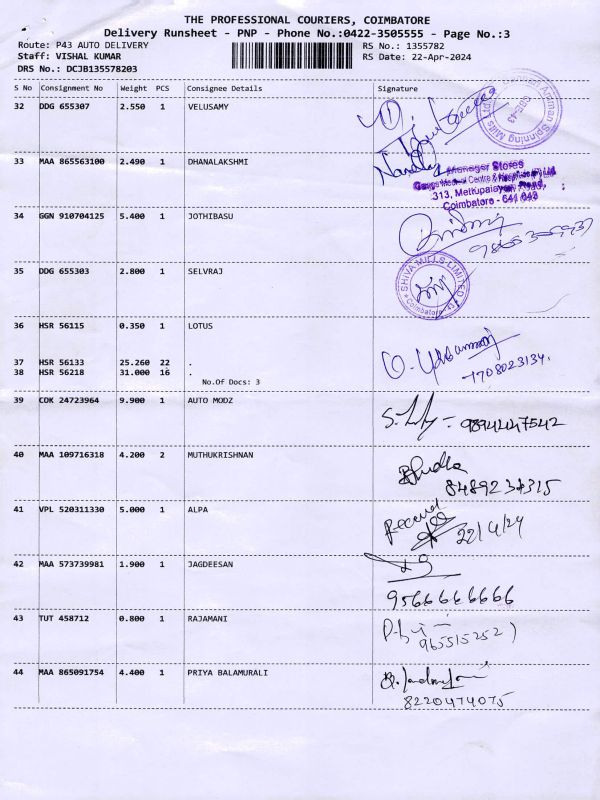 THE PROFESSIONAL COURIERS, COIMBATORE
Delivery Runsheet - PNP - Phone No.:0422-3505555 - Page No.:3
Route: P43 AUTO DELIVERY RS No.: 1355782
Staff: VISHAL KUMAR RS Date: 22-Apr-2024
DRS No.: DCJB135578203
S No Consignment No Weight PCS Consignee Details Signature
32 DDG 655307 2.550 1 VELUSAMY
33 MAA 865563100 2.490 1 DHANALAKSHMI
Manager Stores
313, Mettupalayam Road,
Coimbatore - 641 043
34 GGN 910704125 5.400 1 JOTHIBASU
35 DDG 655303 2.800 1 SELVRAJ
SHIVA MILLS LIMITED
Coimbatore
36 HSR 56115 0.350 1 LOTUS
37 HSR 56133 25.260 22 .
38 HSR 56218 31.000 16 .
No.Of Docs: 3
7708023134.
39 COK 24723964 9.900 1 AUTO MODZ
9894447542
40 MAA 109716318 4.200 2 MUTHUKRISHNAN
8489234315
41 VPL 520311330 5.000 1 ALPA
Received
22/4/24
42 MAA 573739981 1.900 1 JAGDEESAN
9566666666
43 TUT 458712 0.800 1 RAJAMANI
44 MAA 865091754 4.400 1 PRIYA BALAMURALI
8220474075